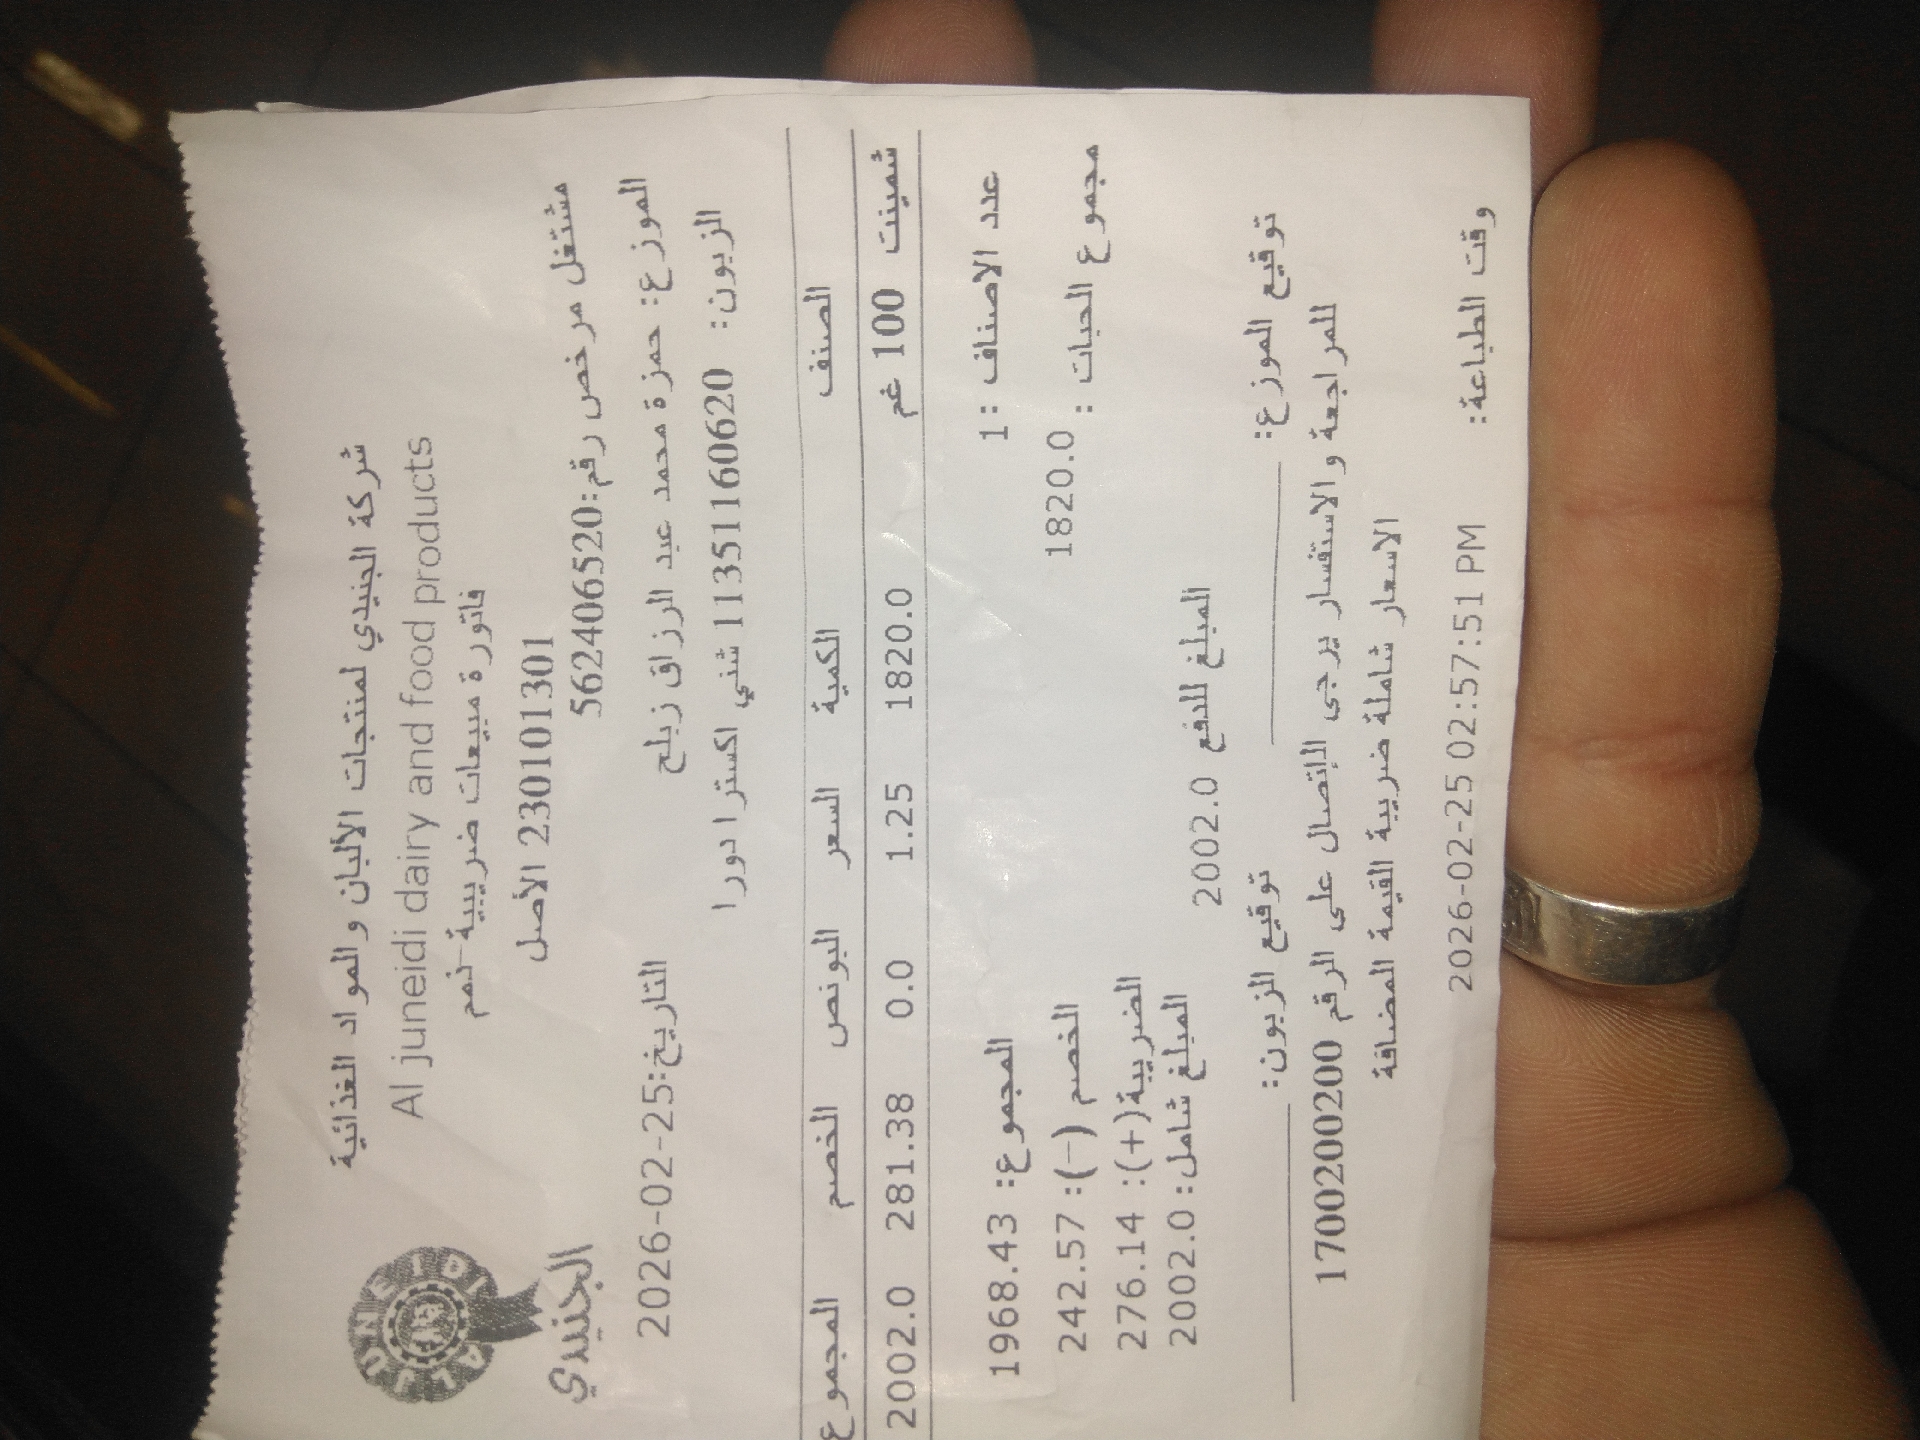 شركة الجنيدي لمنتجات الألبان والمواد الغذائية
Al juneidi dairy and food products
فاتورة مبيعات ضريبية-نمم
230101301 الأصل
مشتغل مرخص رقم:562406520
AL JUNEIDI
الجنيدي
الموزع: حمزة محمد عبد الرزاق زبلح
التاريخ:2026-02-25
الزبون: 1135116062​0 شني اكسترا دورا
الصنف الكمية السعر البونص الخصم المجموع
ثمينت 100 غم 1820.0 1.25 0.0 281.38 2002.0
عدد الاصناف :1 المجموع: 1968.43
مجموع الحبات : 1820.0 الخصم (-): 242.57
الضريبة(+): 276.14
المبلغ شامل: 2002.0
المبلغ للدفع 2002.0
توقيع الموزع: توقيع الزبون:
للمراجعة والاستقسار يرجى الإتصال على الرقم 1700200200
الاسعار شاملة ضريبة القيمة المضافة
وقت الطباعة: 2026-02-25 02:57:51 PM